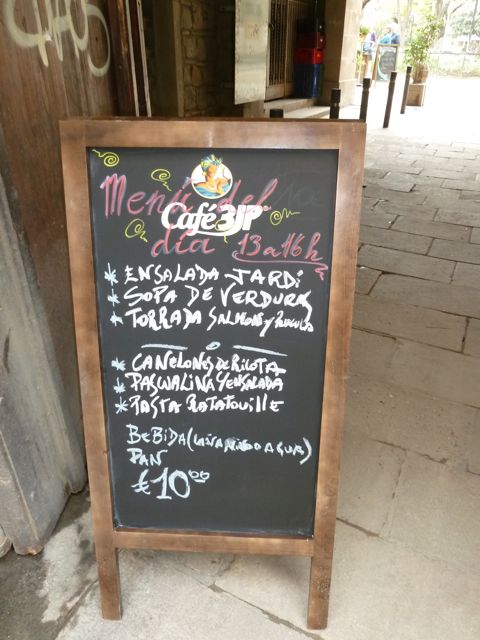 Menú del
Café 3JP
día 13 a 16 h
* ENSALADA JARDÍ
* SOPA DE VERDURAS
* TORRADA SALMON y
* CANELONES DE RICOTA
* PASCUALINA Y ENSALADA
* PASTA RATATOUILLE
BEBIDA ( O AGUA)
PAN
€ 10⁰⁰